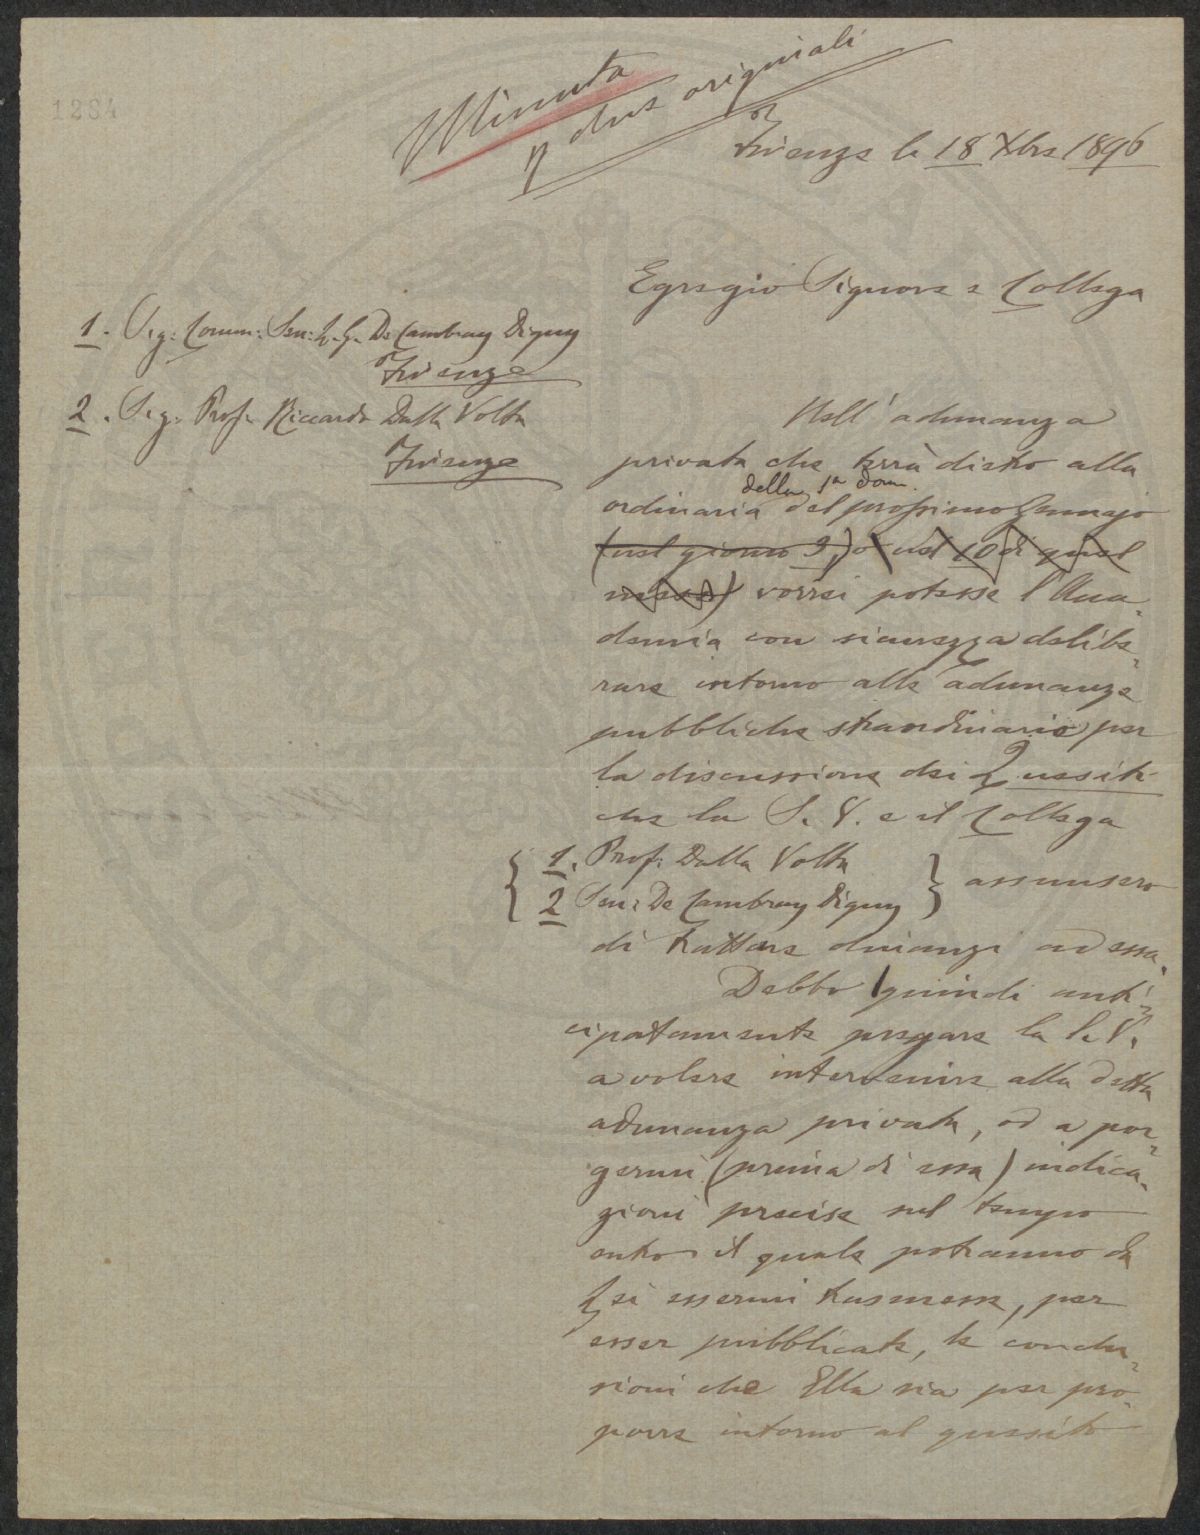 1284
Minuta
p due originali
Firenze li 18 Xbre 1896
Egregio Signore e Collega
1. Sig: Comm: Sen: L. G. De Cambray Digny
Firenze
2. Sig. Prof. Riccardo Dalla Volta
Firenze
Nell' adunanza
privata che terrà dietro alla
della 1a dom.
ordinaria del prossimo Gennajo
(nel giorno 3,) o nel 10 di quel
mese) vorrei potesse l'Acca-
demia con sicurezza delibe-
rare intorno alle adunanze
pubbliche straordinarie per
la discussione dei Quesiti
che la S. V. e il Collega
1. Prof: Dalla Volta
2 Sen: De Cambray Digny
assunsero
di trattare dinanzi ad essa.
Debbo quindi anti-
cipatamente pregare la S. V.
a volere intervenire alla detta
adunanza privata, od a por-
germi (prima di essa) indica-
zioni precise sul tempo
entro il quale potranno da
Lei essermi trasmesse, per
esser pubblicate, le conclu-
sioni che Ella sia per pro-
porre intorno al quesito